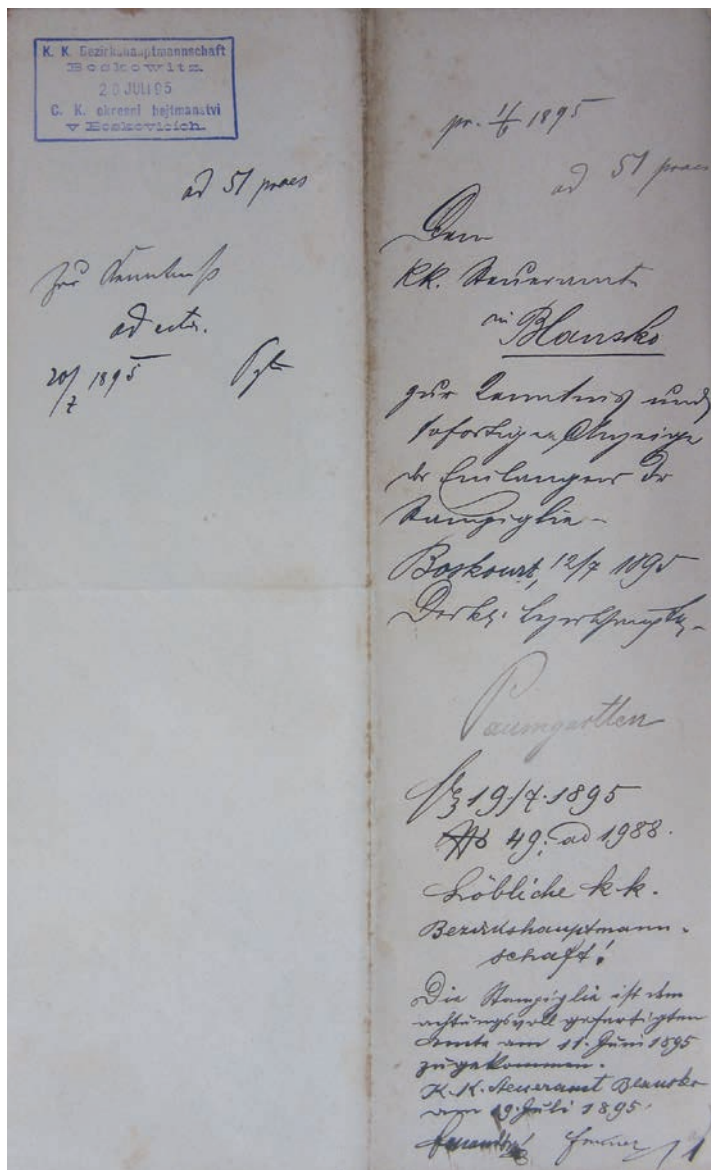 K. K. Bezirkshauptmannschaft
Boskowitz
20 JULI 95
C. K. okresní hejtmanství
v Boskovicích.
ad 51 praes
Zur Kenntniß
ad acta.
20/7 1895
pr. 1/6 1895
ad 51 praes
Dem
kk. Steueramte
in Blansko
zur Kenntnis und
sofortigen Anzeige
des Einlangens der
Stampiglie
Boskowitz, 12/7 1895
Der kk. Bezirkshauptm.
Paumgartten
19/7.1895
No 49. ad 1988.
Löbliche k. k.
Bezirkshauptmann-
schaft!
Die Stampiglie ist dem
achtungsvoll gefertigten
Amte am 11. Juni 1895
zugekommen.
K. K. Steueramt Blansko
am 19. Juli 1895.